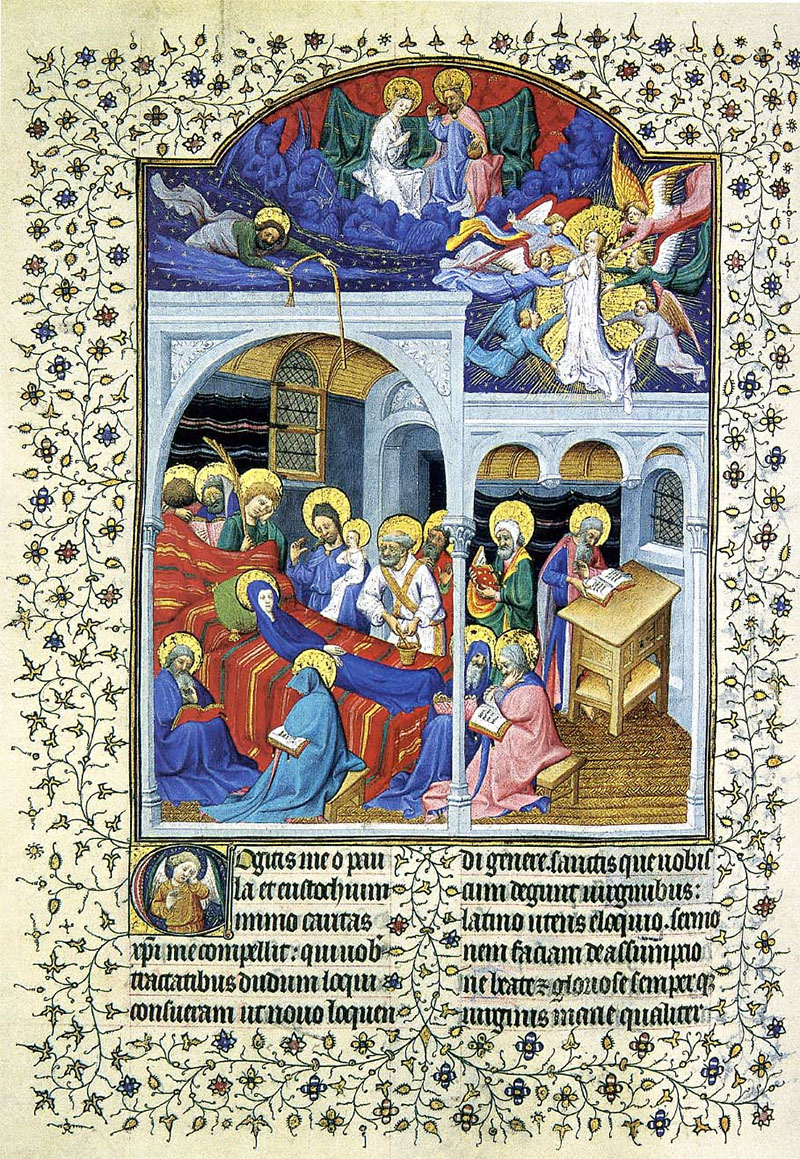 Cogitis me o pau
la et eustochium
immo caritas
xpi me compellit: qui uob
tractatibus dudum loqui
consueram ut nouo loquen
di genere. sanctis que uobis
cum degunt uirginibus:
latino utens eloquio. sermo
nem faciam de assumptio
ne beate & gloriose semperq;
uirginis marie qualiter